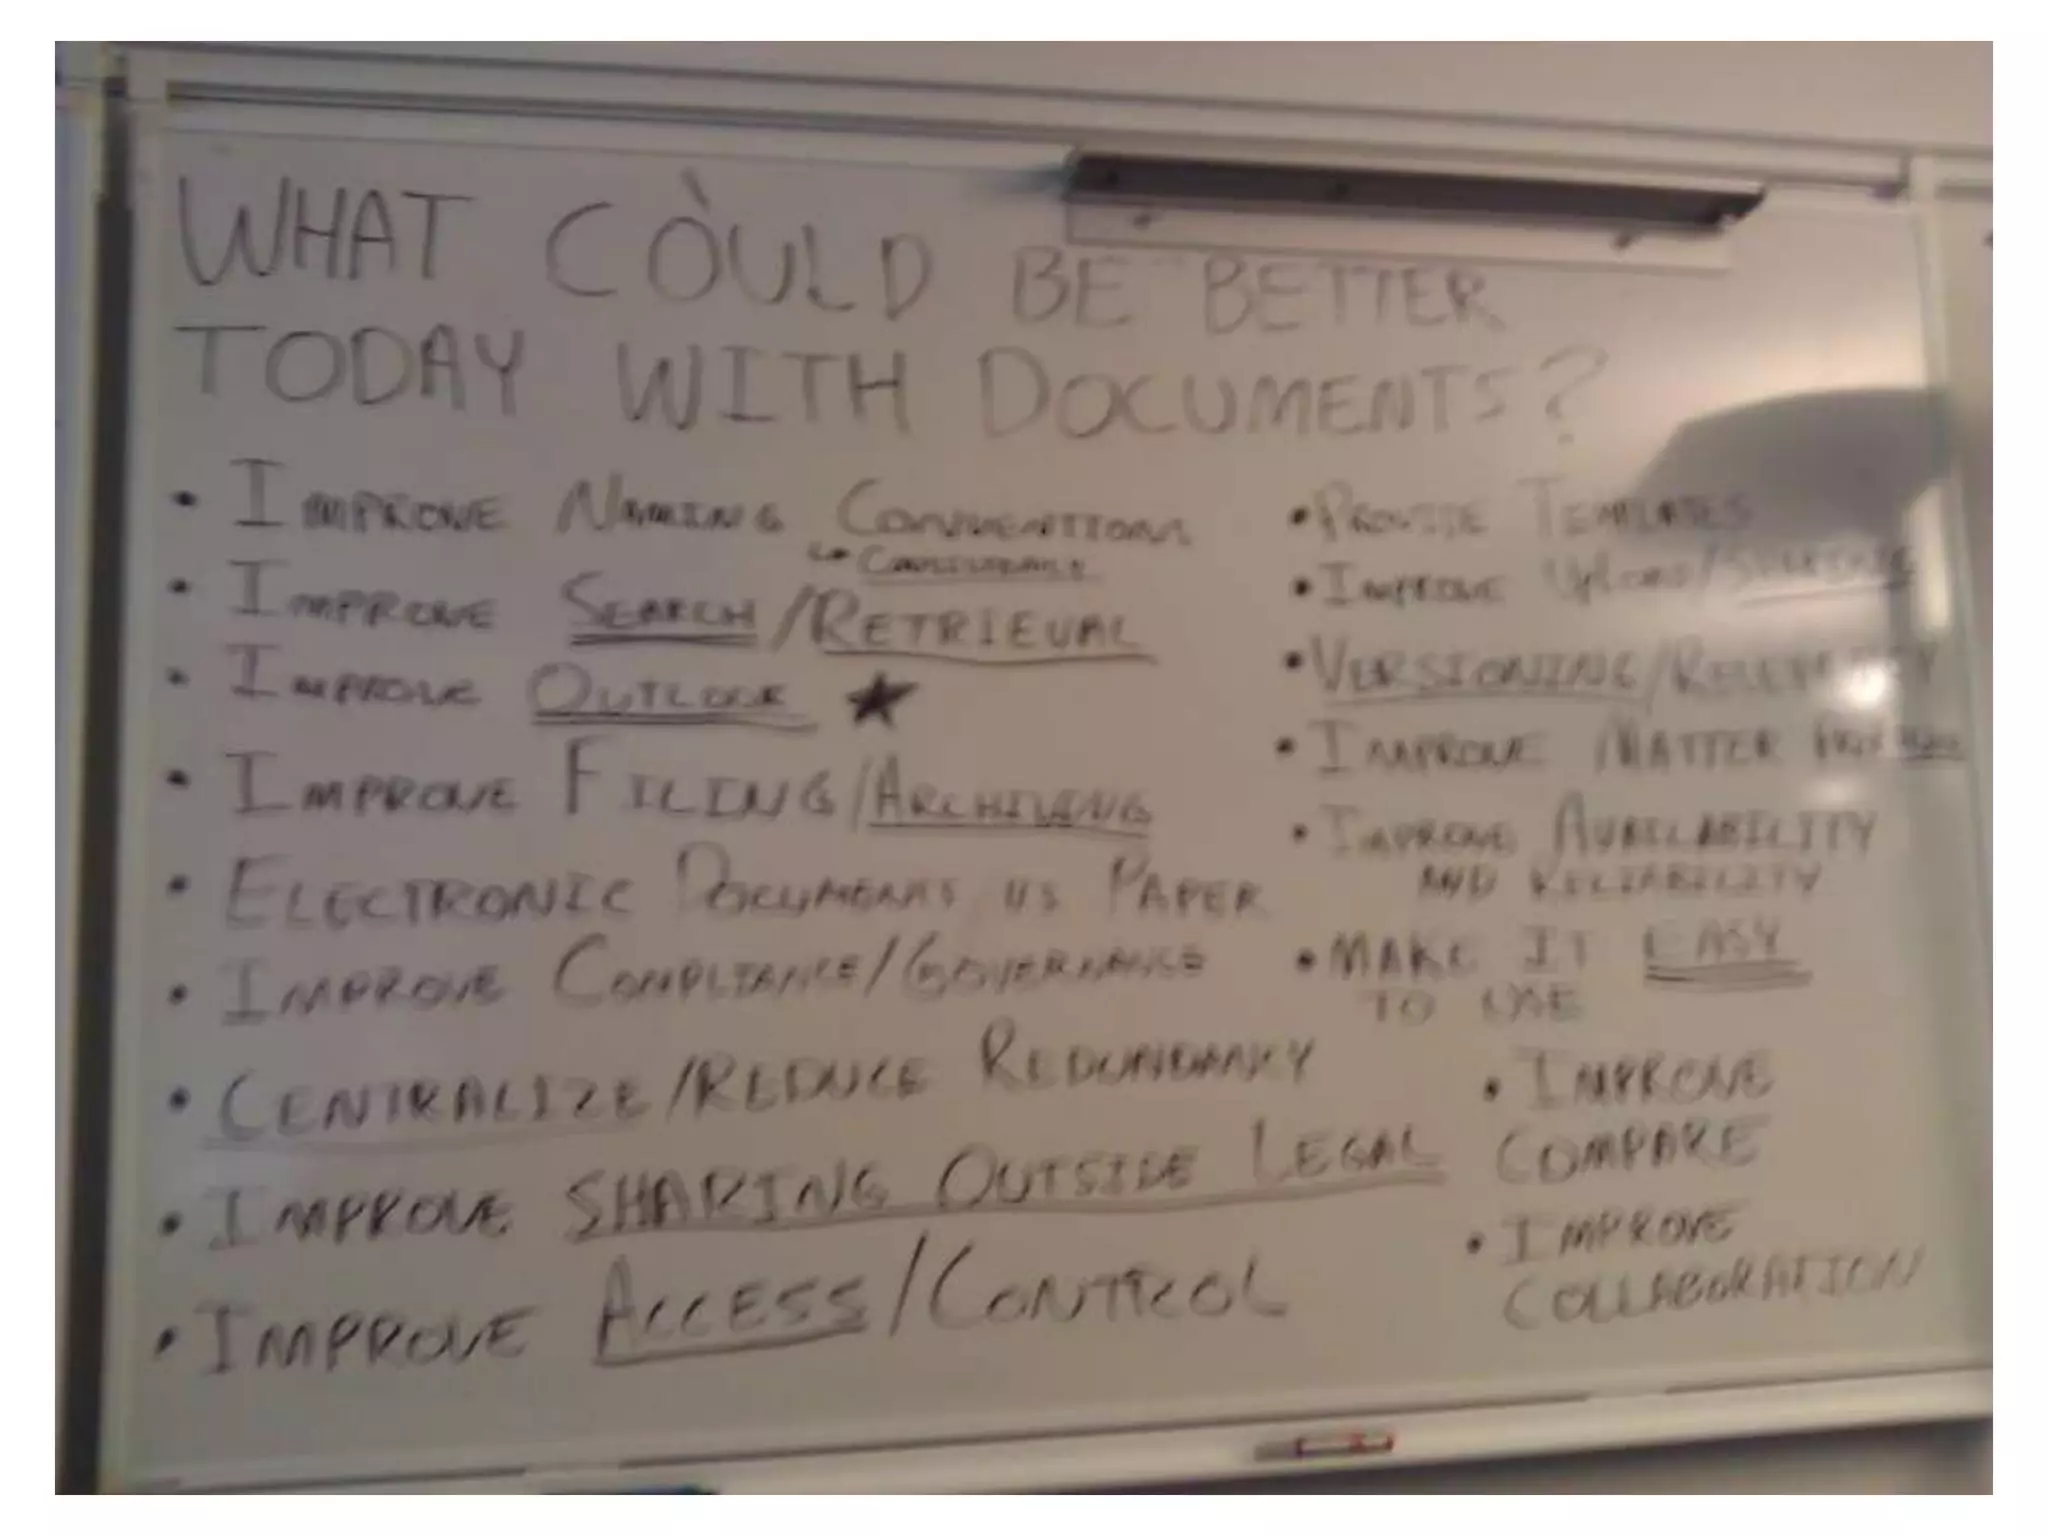 WHAT COULD BE BETTER
TODAY WITH DOCUMENTS?
• IMPROVE NAMING CONVENTIONS
↳ CONSISTENCY
• IMPROVE SEARCH/RETRIEVAL
• IMPROVE OUTLOOK ★
• IMPROVE FILING/ARCHIVING
• ELECTRONIC DOCUMENTS VS PAPER
• IMPROVE COMPLIANCE/GOVERNANCE
• CENTRALIZE/REDUCE REDUNDANCY
• IMPROVE SHARING OUTSIDE LEGAL
• IMPROVE ACCESS/CONTROL
• PROVIDE TEMPLATES
• IMPROVE UPLOAD/
• VERSIONING/
• IMPROVE MATTER
• IMPROVE AVAILABILITY
AND RELIABILITY
• MAKE IT EASY
TO USE
• IMPROVE
COMPARE
• IMPROVE
COLLABORATION